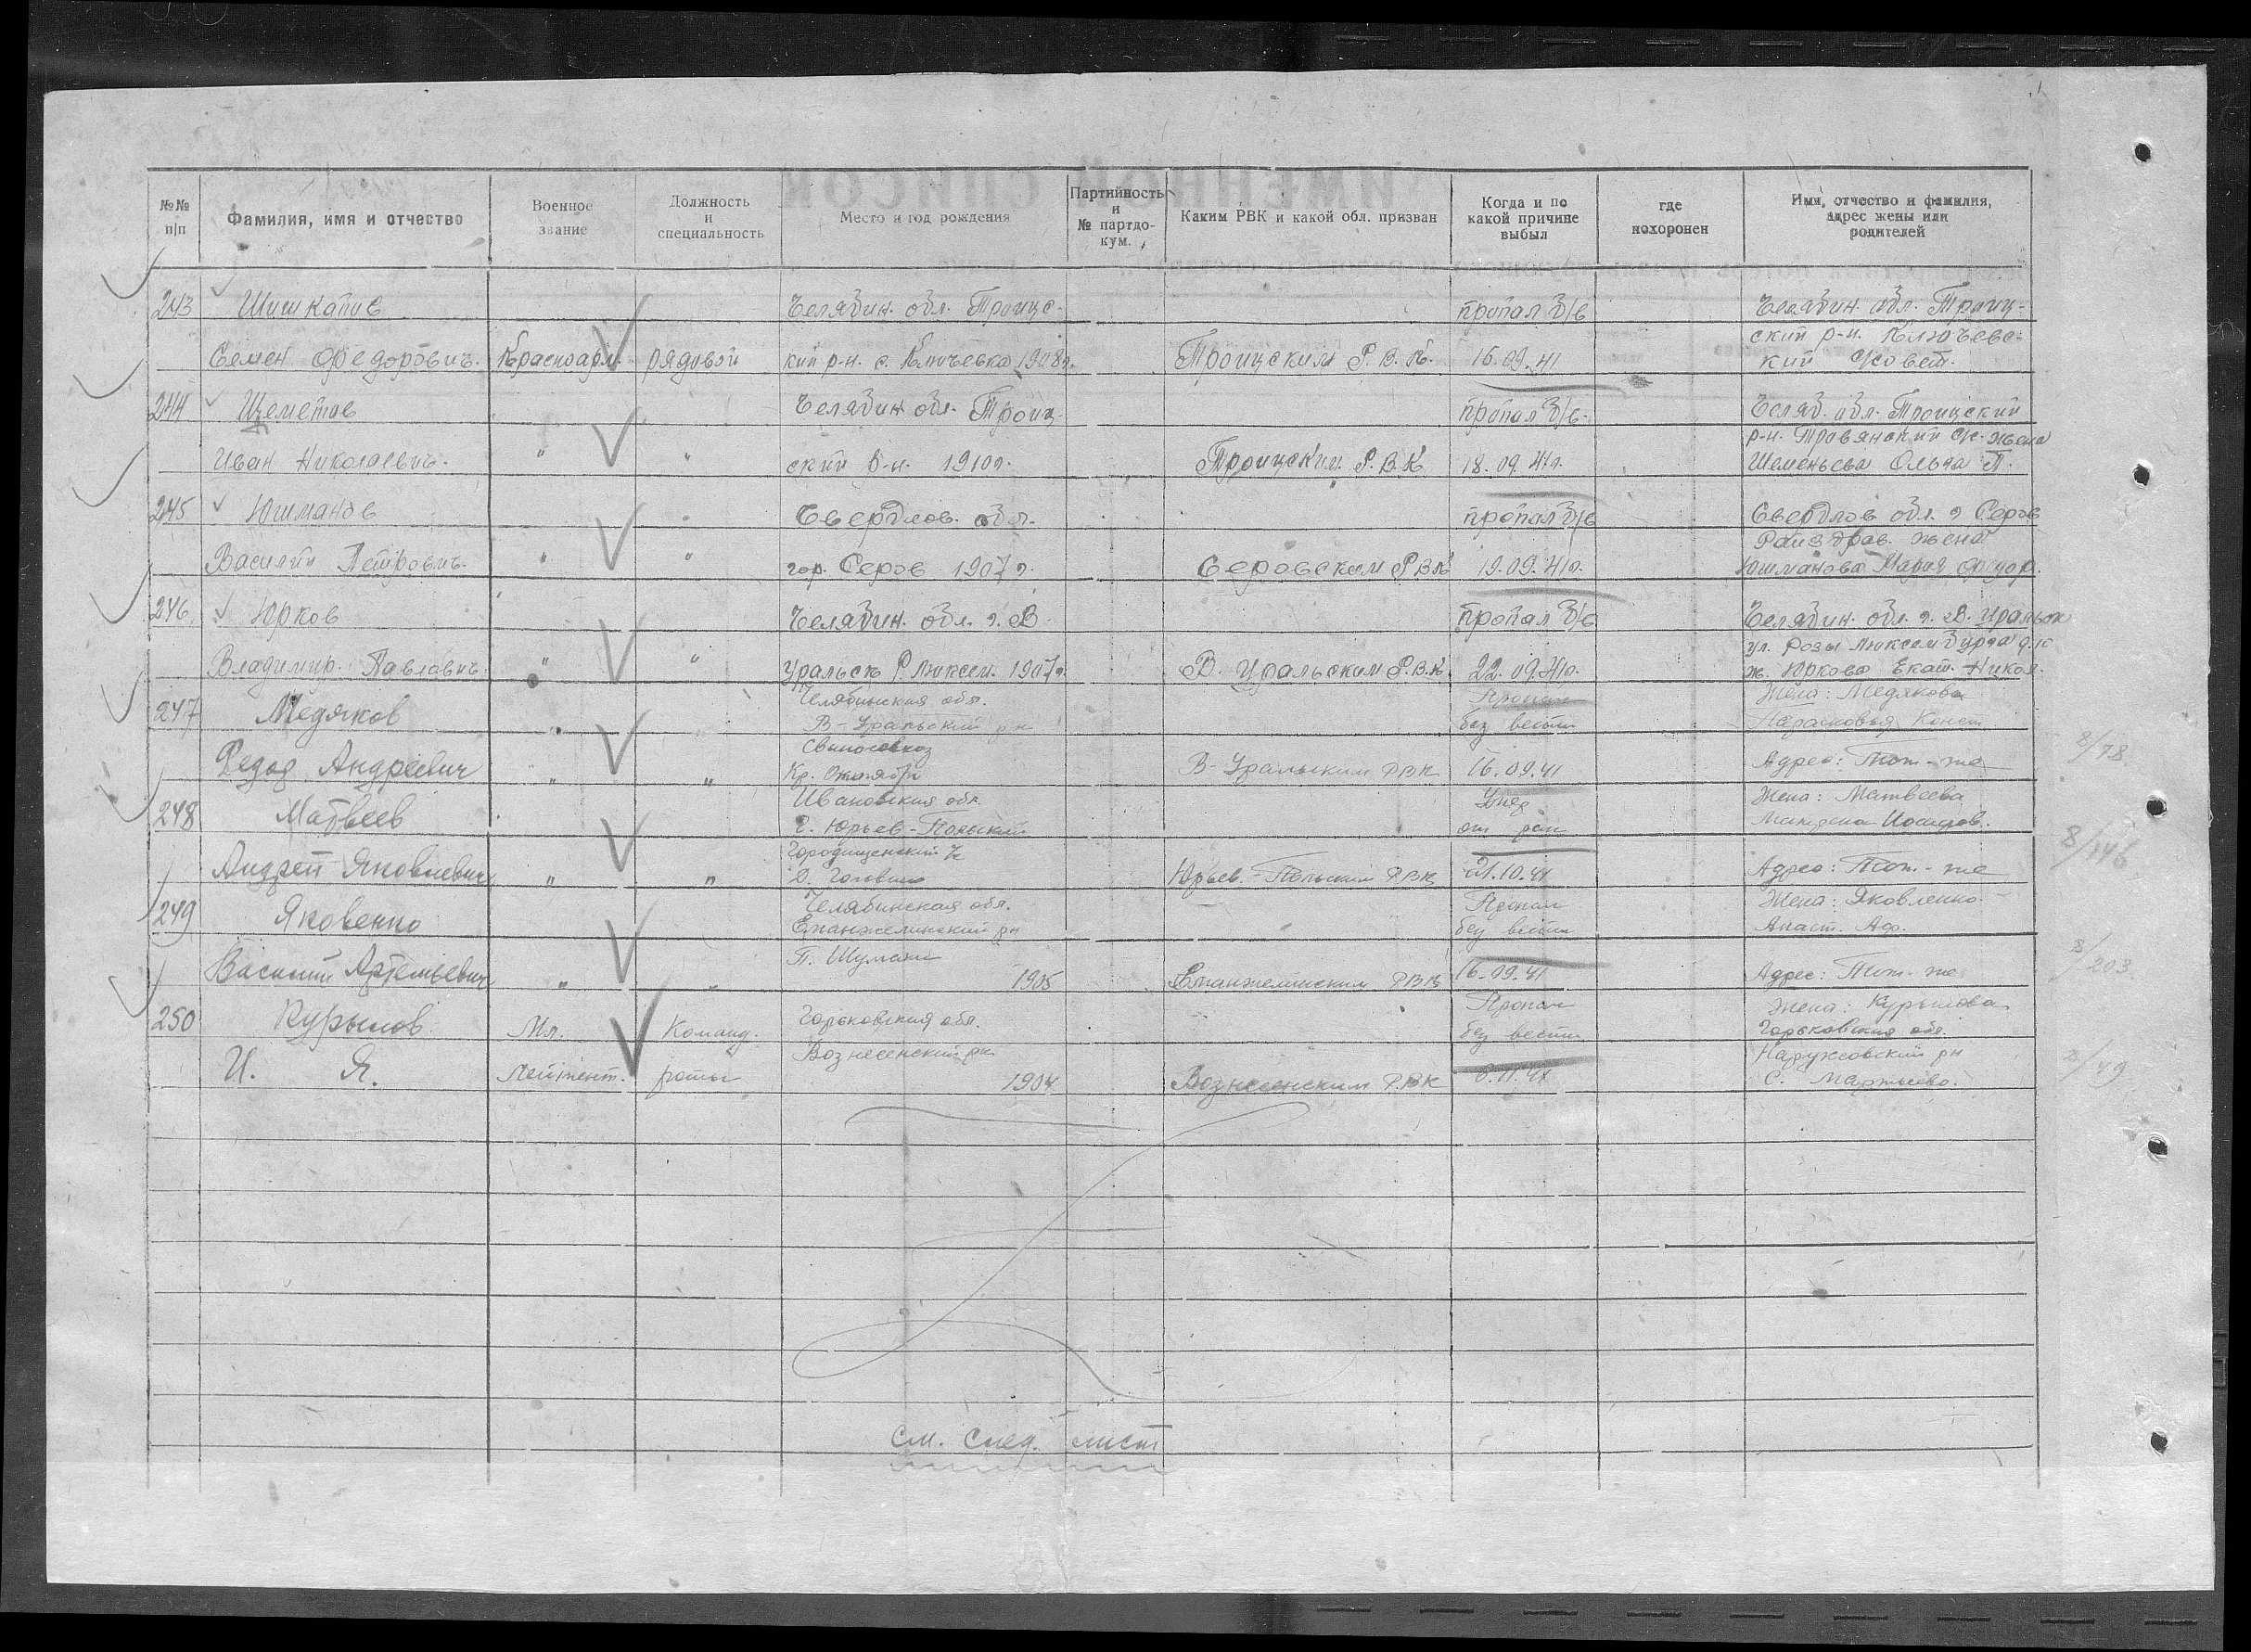 №№ п|п
Фамилия, имя и отчество
Военное звание
Должность и специальность
Место и год рождения
Партийность и № партдокум.
Каким РВК и какой обл. призван
Когда и по какой причине выбыл
где похоронен
Имя, отчество и фамилия, адрес жены или родителей
243 Шишкапив Челябин. обл. Троицс- пропал б/в Челябин. обл. Троиц-
ский р-н. Ключевс-
Семен Федорович. Красноарм. рядовой кий р-н. с. Ключевка 1908г. Троицским Р.В.К. 16.09.41 кий с/совет.
244 Щеметов Челябин обл. Троиц- пропал б/в. Челяб. обл. Троицский
р-н. Травянский с/с. жена
Иван Николаевич. " " ский р-н. 1910г. Троицским. Р.В.К 18.09.41г. Шеменьева Ольга П.
245 Юшманов Свердлов. обл. пропал б/в Свердлов обл. г Серов
Райздрав. жена
Василий Петрович. " " гор. Серов 1907г. Серовским РВК 19.09.41г. Юшманова Мария Фуор.
246 Юрков Челябин. обл. г. В. пропал б/в Челябин. обл. г. В. Уральск
ул. Розы Люксембурга
Владимир. Павлович. " " Уральск Р. Люксем. 1907г. В. Уральским Р.В.К. 22.09.41г. ж. Юркова Екат. Никол.
Челябинская обл. Пропал Жена: Медякова
247 Медяков В-Уральский р-н без вести Парасковья Конст
Свиносовхоз
Федор Андреевич " " Кр. Октябрь В-Уральским РВК 16.09.41 Адрес: Тот-же
8/78
Ивановская обл. Умер Жена: Матвеева
248 Матвеев г. Юрьев-Польский от ран
Городищенский
Андрей Яковлевич " " Юрьев.-Польским РВК 21.10.41 Адрес: Тот-же
8/146
Челябинская обл. Пропал Жена: Яковленко
249 Яковенко Еманжелинский рн без вести Анаст. Аф.
П. Шумаки
Василий Артемьевич " " 1905 Еманжелинским РВК 16.09.41 Адрес: Тот-же
8/203
Пропал Жена: Курылова
250 Курылов Мл. Команд. Горьковская обл. без вести Горьковская обл.
Вознесенский рн
И. Я. Лейтент. роты 1904 Вознесенским РВК 6.11.41
/49
см. след. лист